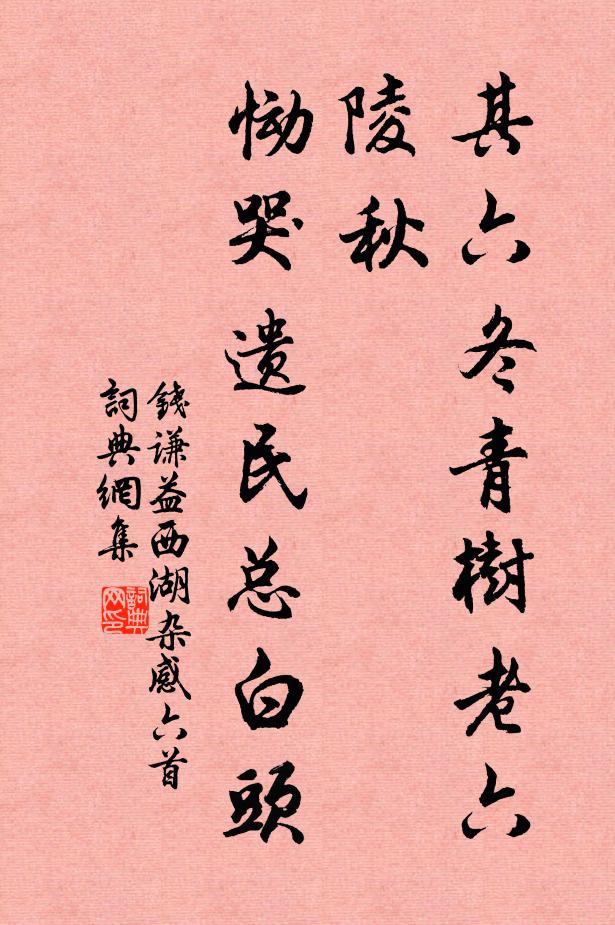 其六冬青樹老六
陵秋
恸哭遗民总白頭
錢谦益西湖杂感六首
詞典網集
詞典
网印